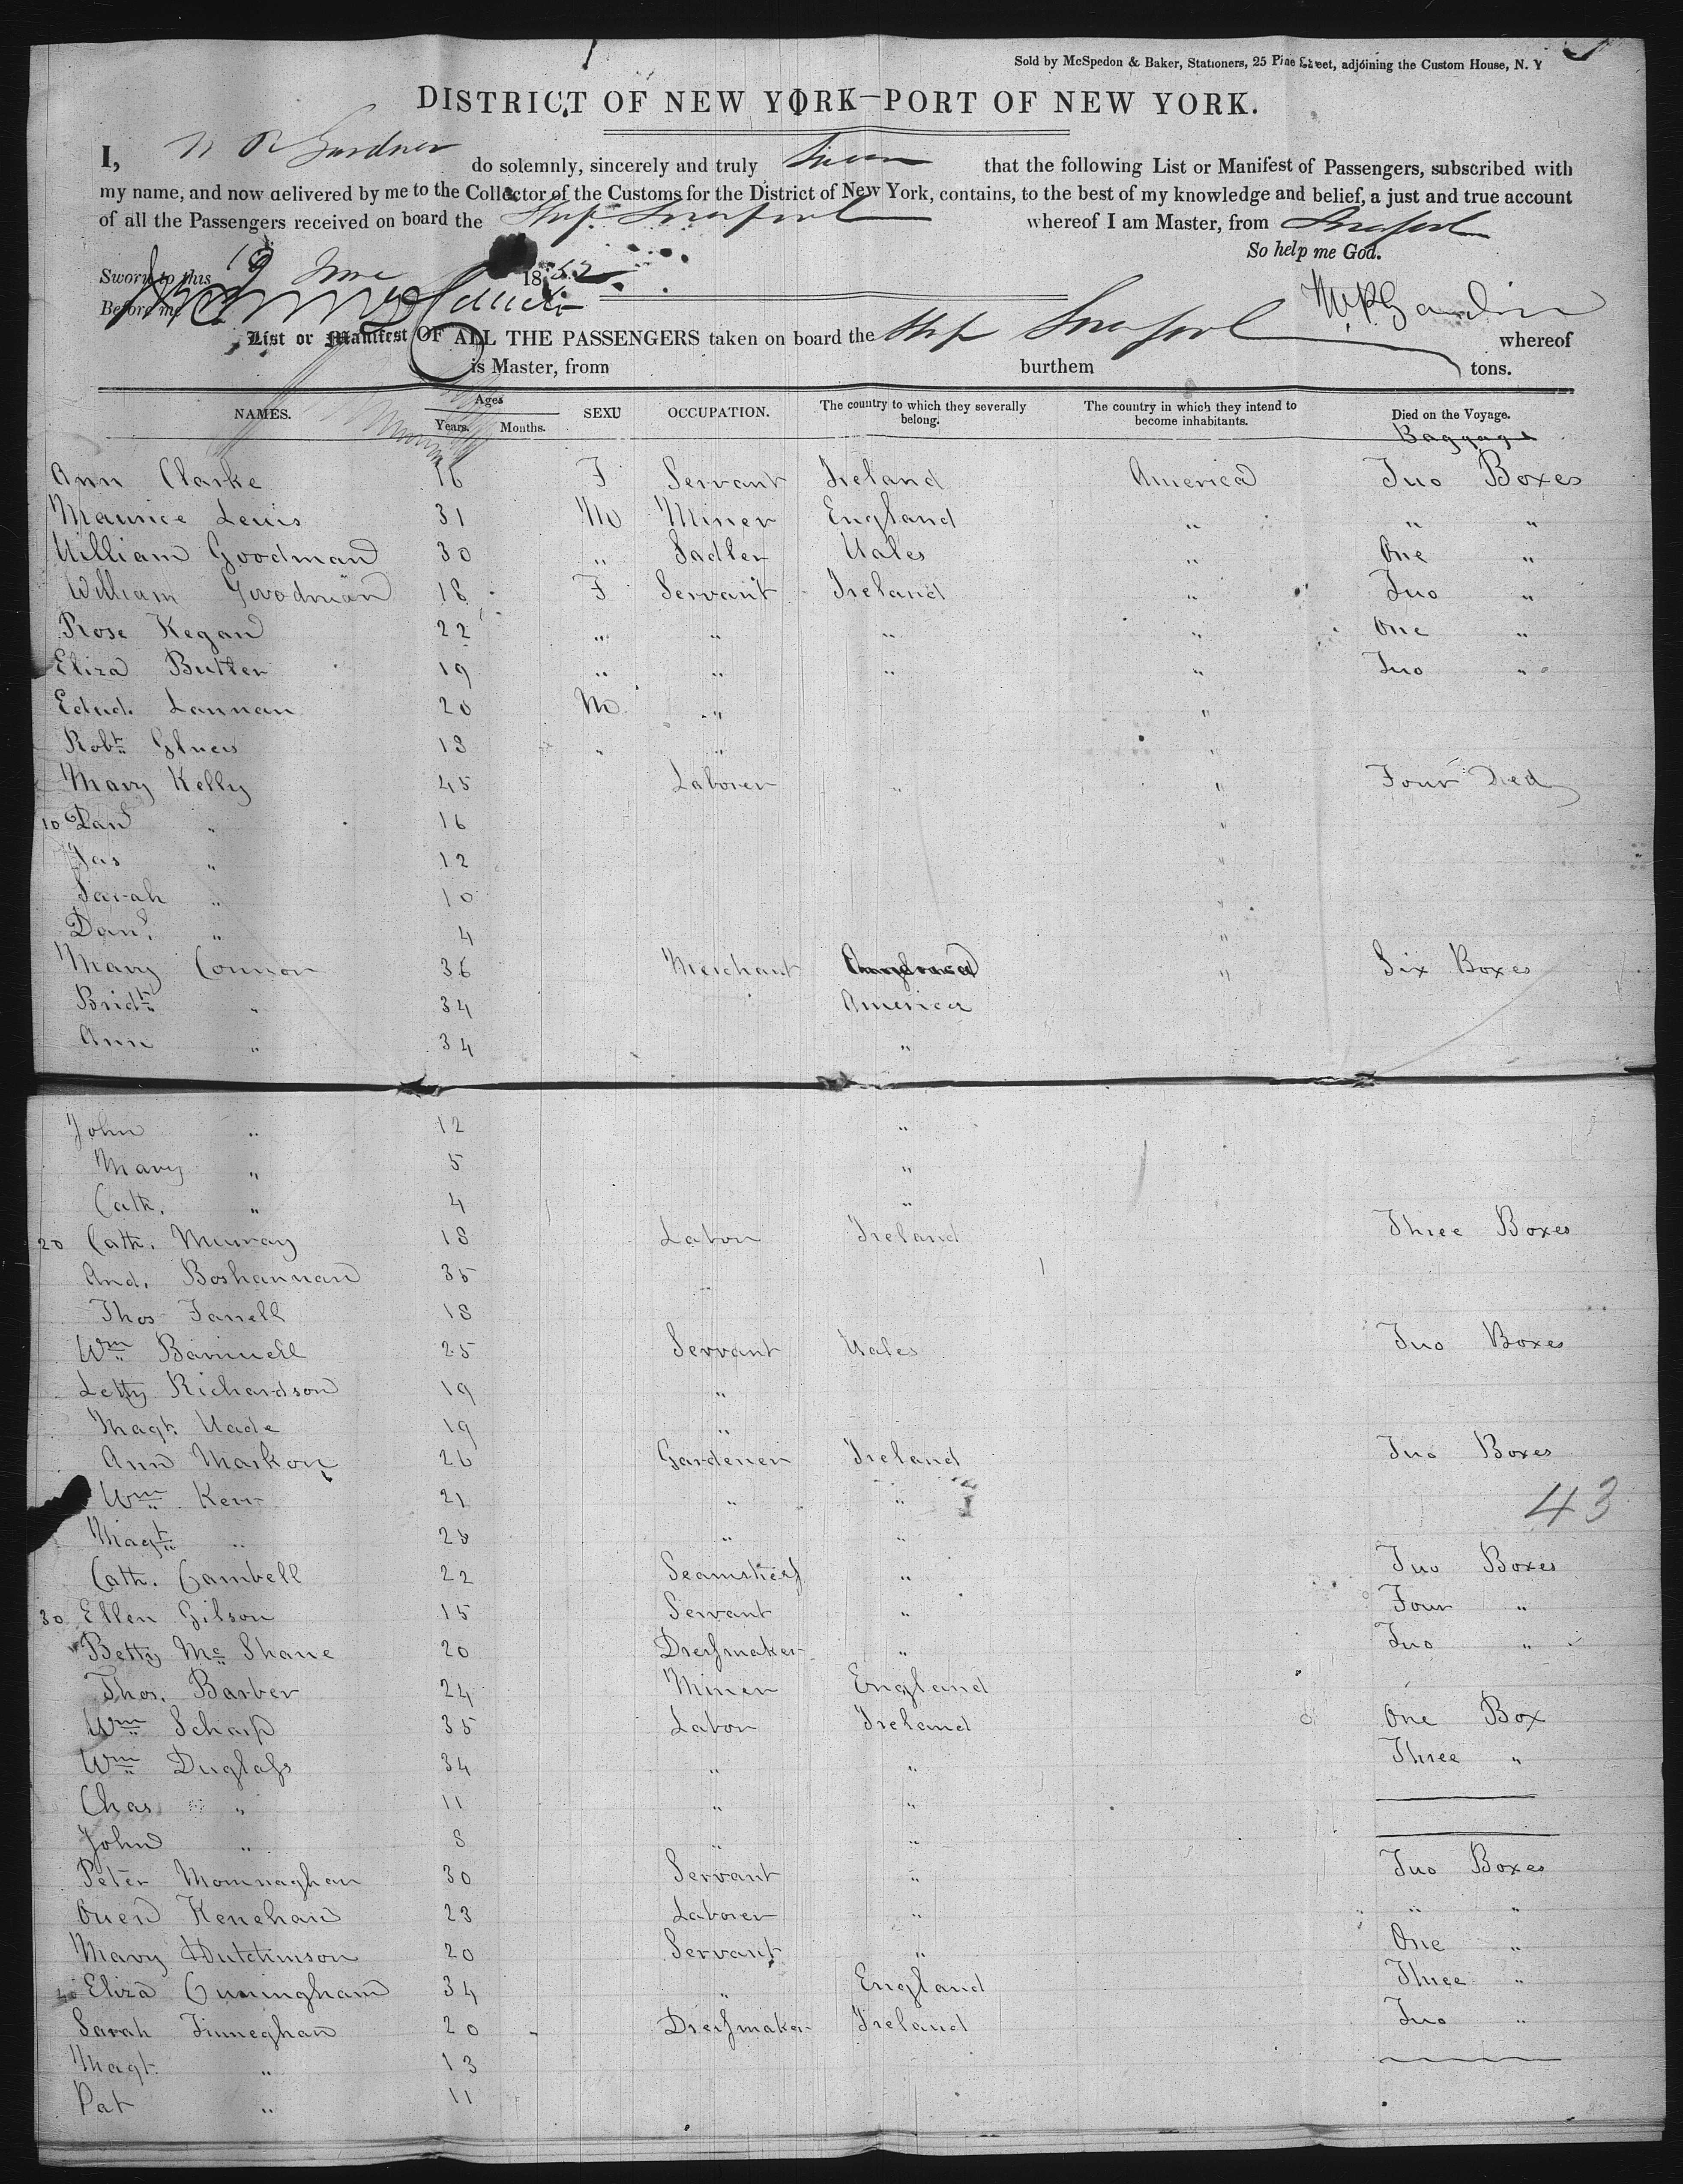 Sold by McSpedon & Baker, Stationers, 25 Pine Street, adjoining the Custom House, N. Y
DISTRICT OF NEW YORK—PORT OF NEW YORK.
I, Gardner do solemnly, sincerely and truly Swear that the following List or Manifest of Passengers, subscribed with
my name, and now delivered by me to the Collector of the Customs for the District of New York, contains, to the best of my knowledge and belief, a just and true account
of all the Passengers received on board the Ship Liverpool whereof I am Master, from Liverpool
So help me God.
Sworn to this 19 June 1852
Before me
List or Manifest OF ALL THE PASSENGERS taken on board the Ship Liverpool whereof
is Master, from burthem tons.
NAMES. Ages Years. Months. SEX OCCUPATION. The country to which they severally belong. The country in which they intend to become inhabitants. Died on the Voyage.
Baggage
Ann Clarke 16 F Servant Ireland America Two Boxes
Maurice Lewis 31 M Miner England " " "
William Goodman 30 " Sadler Wales " One "
William Goodman 18 F Servant Ireland " Two "
Rose Kegan 22 " " " " One "
Eliza Butler 19 " " " " Two "
Edwd. Lannan 20 M " "
Robt. 18 " " "
Mary Kelly 45 Laborer " " Four Died
10 Danl " 16 "
Jas " 12 "
Sarah " 10 "
Danl. " 4 "
Mary Connor 36 Merchant " Six Boxes
Bridt. " 34 America
Ann " 34 "
John " 12 "
Mary " 5 "
Cath. " 4 "
20 Cath. Murray 18 Labor Ireland Three Boxes
And. Boshannan 35
Thos Farrell 18
Wm Barnwell 25 Servant Wales Two Boxes
Letty Richardson 19 "
Magt. Wade 19 "
Ann Markon 26 Gardener Ireland Two Boxes
Wm Kerr 21 " "
43
Magt. " 28 " "
Cath. Cambell 22 Seamstress " Two Boxes
30 Ellen Gilson 15 Servant " Four "
Betty Mc Shane 20 Dressmaker " Two "
Thos. Barber 24 Miner England
Wm Scharp 35 Labor Ireland One Box
Wm Duglass 34 " " Three "
Chas " 11 " "
John " 8 " "
Peter Momnaghan 30 Servant " Two Boxes
Owen Kenehan 23 Laborer " " "
Mary Hutchinson 20 Servant " One "
40 Eliza Cuningham 34 " England Three "
Sarah Finneghan 20 Dressmaker Ireland Two "
Magt. " 13
Pat " 11